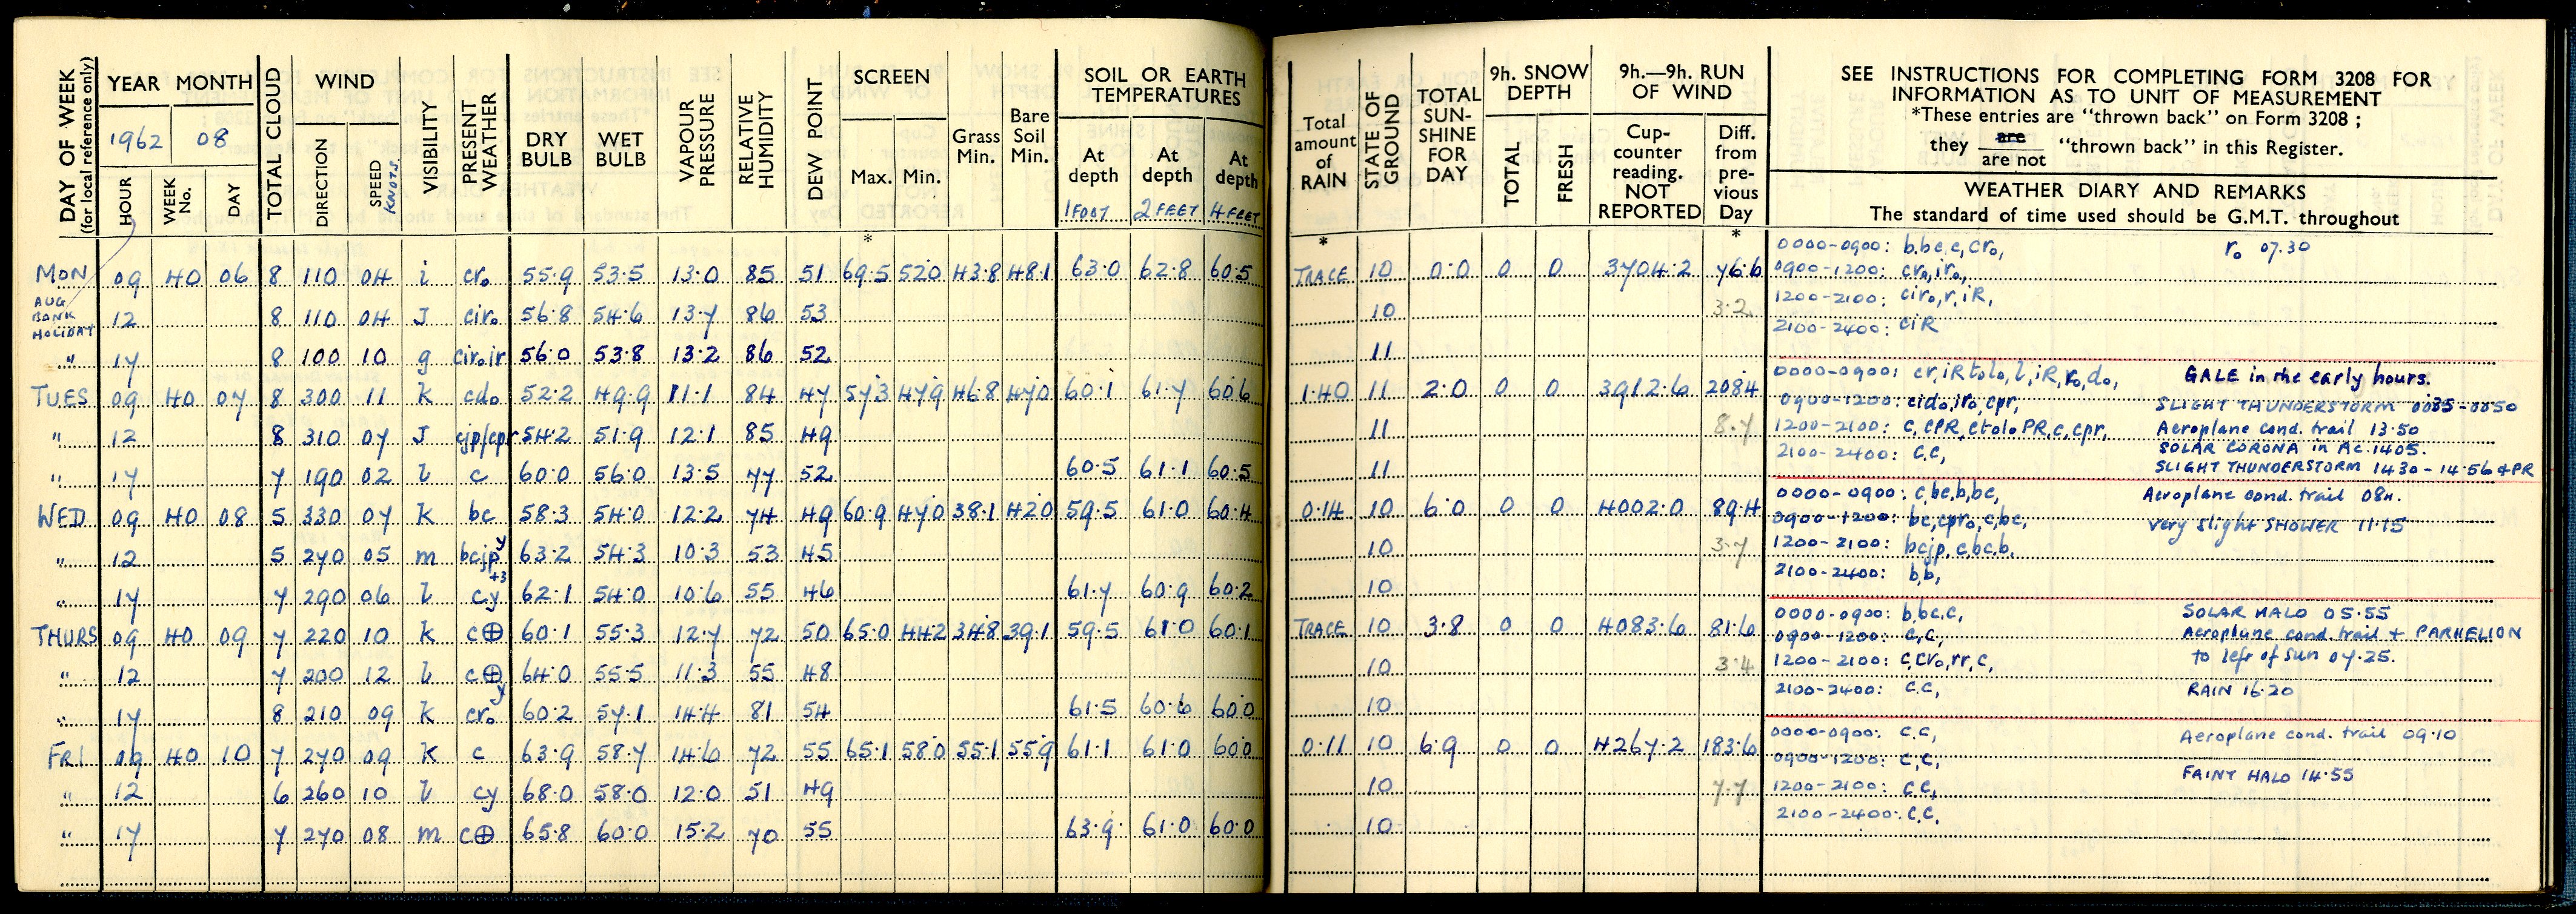 DAY OF WEEK (for local reference only)
YEAR MONTH
1962 08
HOUR WEEK No. DAY
TOTAL CLOUD
WIND
DIRECTION SPEED KNOTS
VISIBILITY
PRESENT WEATHER
DRY BULB WET BULB
VAPOUR PRESSURE
RELATIVE HUMIDITY
DEW POINT
SCREEN
Max. Min.
Grass Min.
Bare Soil Min.
SOIL OR EARTH TEMPERATURES
At depth At depth At depth
1 FOOT 2 FEET 4 FEET
*
MON 09 40 06 8 110 04 i cr₀ 55.9 53.5 13.0 85 51 69.5 52.0 43.8 48.1 63.0 62.8 60.5
AUG BANK HOLIDAY 12 8 110 04 J cir₀ 56.8 54.6 13.7 86 53
" 17 8 100 10 g cir₀ir 56.0 53.8 13.2 86 52
TUES 09 40 07 8 300 11 k cd₀ 52.2 49.9 11.1 84 47 57.3 47.9 46.8 47.0 60.1 61.7 60.6
" 12 8 310 07 J cjp/cpr 54.2 51.9 12.1 85 49
" 17 7 190 02 l c 60.0 56.0 13.5 77 52 60.5 61.1 60.5
WED 09 40 08 5 330 07 k bc 58.3 54.0 12.2 74 49 60.9 47.0 38.1 42.0 59.5 61.0 60.4
" 12 5 270 05 m bcjp y +3 63.2 54.3 10.3 53 45
" 17 7 290 06 l cy 62.1 54.0 10.6 55 46 61.7 60.9 60.2
THURS 09 40 09 7 220 10 k c⊕ 60.1 55.3 12.7 72 50 65.0 44.2 34.8 39.1 59.5 61.0 60.1
" 12 7 200 12 l c⊕ y 64.0 55.5 11.3 55 48
" 17 8 210 09 k cr₀ 60.2 57.1 14.4 81 54 61.5 60.6 60.0
FRI 09 40 10 7 270 09 k c 63.9 58.7 14.6 72 55 65.1 58.0 55.1 55.9 61.1 61.0 60.0
" 12 6 260 10 l cy 68.0 58.0 12.0 51 49
" 17 7 270 08 m c⊕ 65.8 60.0 15.2 70 55 63.9 61.0 60.0
Total amount of RAIN
STATE OF GROUND
TOTAL SUN-SHINE FOR DAY
9h. SNOW DEPTH
TOTAL FRESH
9h.—9h. RUN OF WIND
Cup-counter reading. NOT REPORTED
Diff. from pre-vious Day
SEE INSTRUCTIONS FOR COMPLETING FORM 3208 FOR
INFORMATION AS TO UNIT OF MEASUREMENT
*These entries are "thrown back" on Form 3208 ;
they are / are not "thrown back" in this Register.
WEATHER DIARY AND REMARKS
The standard of time used should be G.M.T. throughout
* *
TRACE 10 0.0 0 0 3704.2 76.6
10 3.2
11
0000-0900: b,bc,c,cr₀, r₀ 07.30
0900-1200: cr₀,ir₀,
1200-2100: cir₀,r,iR,
2100-2400: ciR
1.40 11 2.0 0 0 3912.6 208.4
11 8.7
11
0000-0900: cr,iRtolo,l,iR,r₀,d₀, GALE in the early hours.
0900-1200: cid₀,ir₀,cpr, SLIGHT THUNDERSTORM 0035-0050
1200-2100: c,cPR,ctolo PR,c,cpr, Aeroplane cond. trail 13.50
2100-2400: c,c, SOLAR CORONA in Ac.1405.
SLIGHT THUNDERSTORM 1430-14.56 & PR
0.14 10 6.0 0 0 4002.0 89.4
10 3.7
10
0000-0900: c,bc,b,bc, Aeroplane cond. trail 08h.
0900-1200: bc,cpr₀,c,bc, very slight SHOWER 11.15
1200-2100: bcjp,c,bc,b,
2100-2400: b,b,
TRACE 10 3.8 0 0 4083.6 81.6
10 3.4
10
0000-0900: b,bc,c, SOLAR HALO 05.55
0900-1200: c,c, Aeroplane cond. trail + PARHELION
1200-2100: c,cr₀,rr,c, to left of Sun 07.25.
2100-2400: c,c, RAIN 16.20
0.11 10 6.9 0 0 4267.2 183.6
10 7.7
10
0000-0900: c,c, Aeroplane cond. trail 09.10
0900-1200: c,c,
FAINT HALO 14.55
1200-2100: c,c,
2100-2400: c,c,